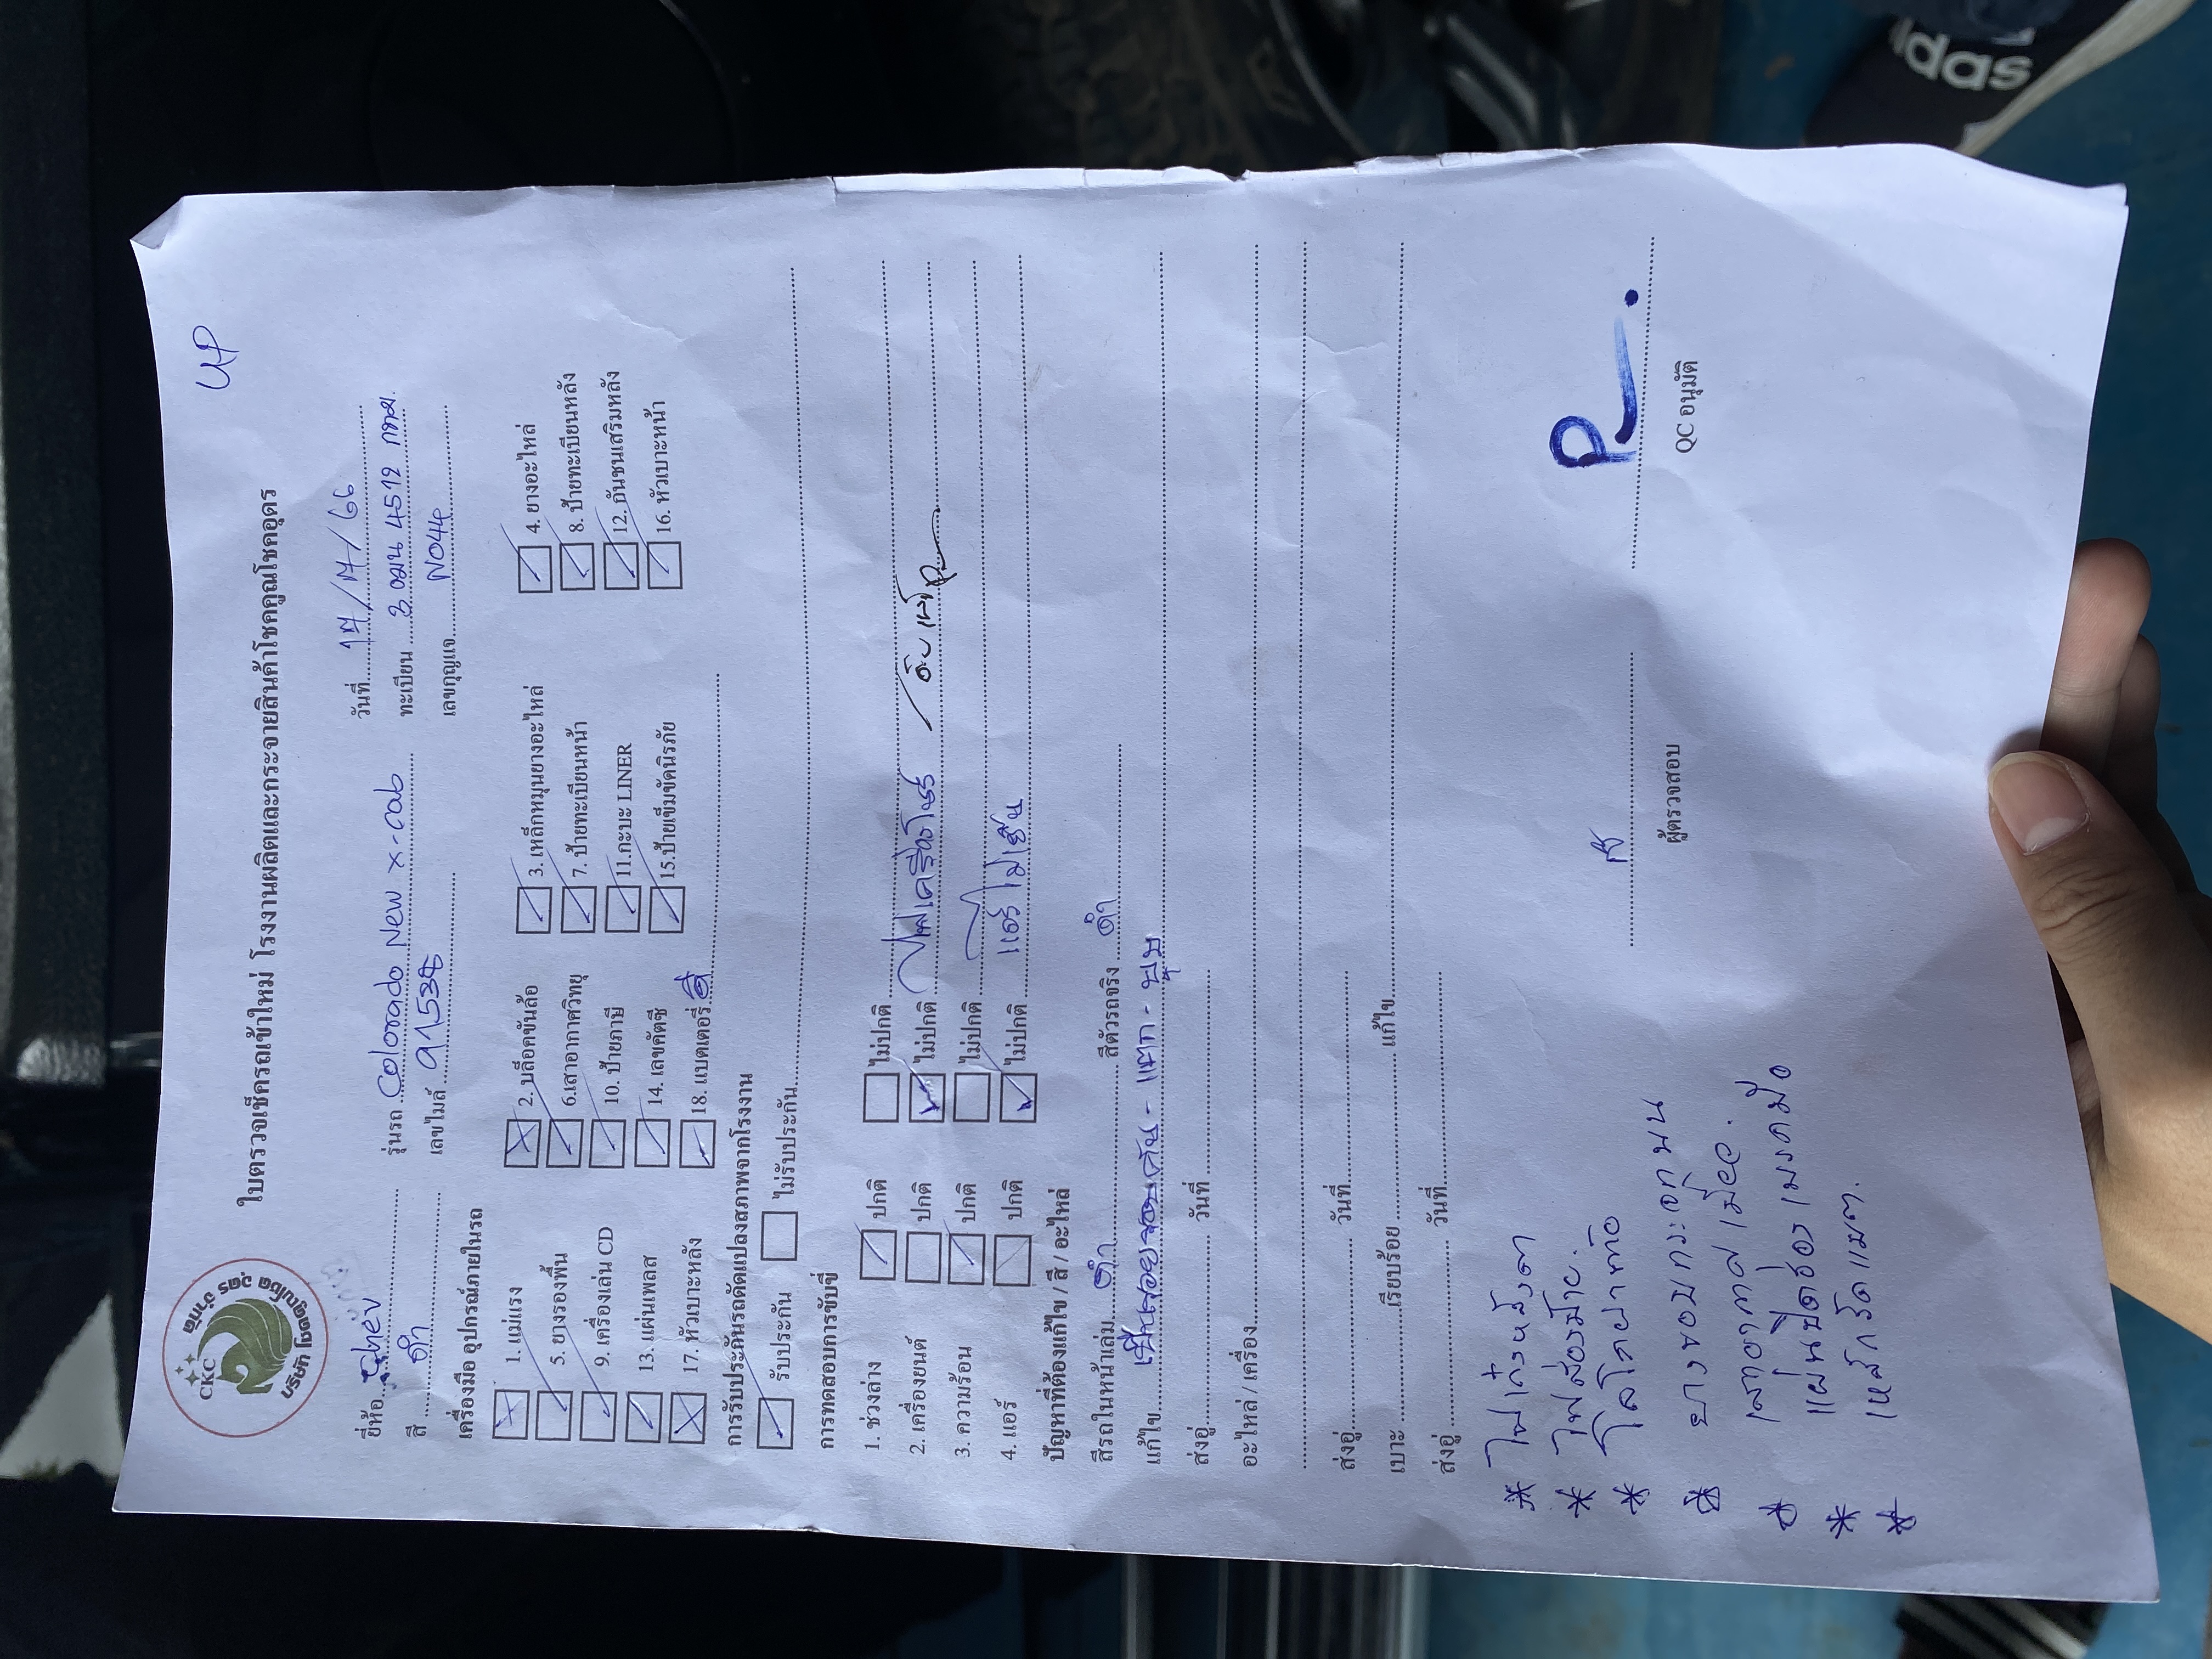 UP
CKC
บริษัท คูณโชค อุดร จำกัด
ใบตรวจเช็ครถเข้าใหม่ โรงงานผลิตและกระจายสินค้าโชคคูณโชคอุดร
ยี่ห้อ Chev รุ่นรถ Colorado New x-cab วันที่ 17/7/66
สี ดำ เลขไมล์ 91538 ทะเบียน 3 ฒฆ 4512 กทม.
เลขกุญแจ N044
เครื่องมือ อุปกรณ์ภายในรถ
1. แม่แรง 2. บล็อคขันล้อ 3. เหล็กหมุนยางอะไหล่ 4. ยางอะไหล่
5. ยางรองพื้น 6.เสาอากาศวิทยุ 7. ป้ายทะเบียนหน้า 8. ป้ายทะเบียนหลัง
9. เครื่องเล่น CD 10. ป้ายภาษี 11.กะบะ LINER 12.กันชนเสริมหลัง
13. แผ่นเพลส 14. เลขคัตซี 15.ป้ายเข็มขัดนิรภัย 16. หัวเบาะหน้า
17. หัวเบาะหลัง 18. แบตเตอรี่
การรับประกันรถดัดแปลงสภาพจากโรงงาน
รับประกัน ไม่รับประกัน
การทดสอบการขับขี่
1. ช่วงล่าง ปกติ ไม่ปกติ
2. เครื่องยนต์ ปกติ ไม่ปกติ ไฟเครื่องโชว์
3. ความร้อน ปกติ ไม่ปกติ
4. แอร์ ปกติ ไม่ปกติ แอร์ไม่เย็น
ปัญหาที่ต้องแก้ไข / สี / อะไหล่
สีรถในหน้าเล่ม ดำ สีตัวรถจริง ดำ
แก้ไข เป็นรอยรอบคัน - แตก - บุบ
ส่งอู่ วันที่
อะไหล่ / เครื่อง
ส่งอู่ วันที่
เบาะ เรียบร้อย แก้ไข
ส่งอู่ วันที่
* ไฟเก๋งหลังตา
* ไฟส่องป้าย.
* โลโกฝาท้าย
* ยางขอบกระจกบน
* เสาอากาศเมื่อย.
* แผ่นปิดช่องเบรคมือ
* เหล็กรัดแบต.
ผู้ตรวจสอบ QC อนุมัติ
adidas